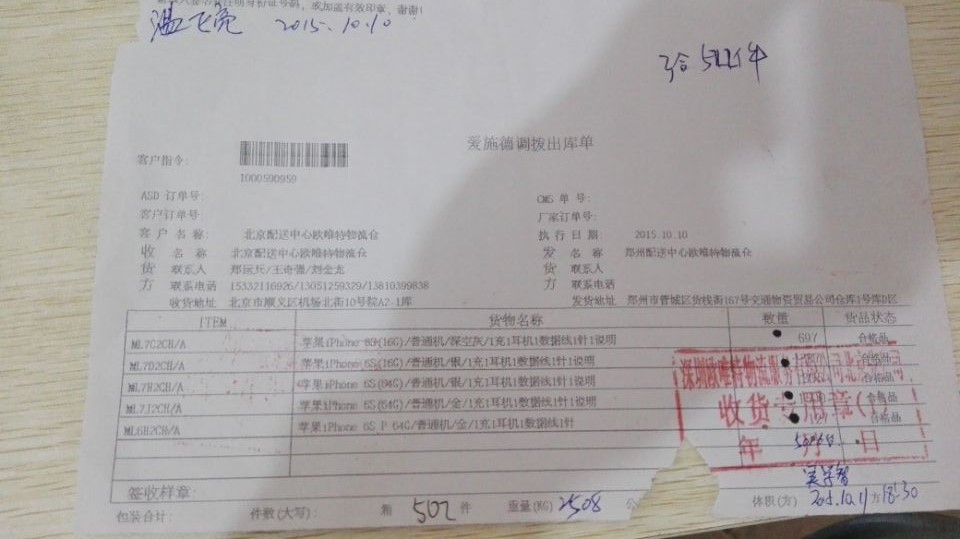 或加盖有效印章，谢谢！
2015.10.10
爱施德调拨出库单
客户指令:
1000590959
ASD 订单号:
CMS 单 号:
客户订单号:
厂家订单号:
客 户 名 称: 北京配送中心欧唯特物流仓
执 行 日 期: 2015.10.10
收 名 称 北京配送中心欧唯特物流仓
发 名 称: 郑州配送中心欧唯特物流仓
货 联系人 郑运兵/王奇强/刘金龙
货 联系人:
方 联系电话 15332116926/13051259329/13810399838
方 联系电话:
收货地址 北京市顺义区机场北街10号院A2-1库
发货地址 郑州市管城区货栈街167号交通物资贸易公司仓库1号库D区
ITEM 货物名称 数量 货品状态
ML7C2CH/A 苹果iPhone 6S(16G)/普通机/深空灰/1充1耳机1数据线1针1说明 697 合格品
ML7D2CH/A 苹果iPhone 6S(16G)/普通机/银/1充1耳机1数据线1针1说明
ML7H2CH/A 苹果iPhone 6S(64G)/普通机/银/1充1耳机1数据线1针1说明 合格品
ML7J2CH/A 苹果iPhone 6S(64G)/普通机/金/1充1耳机1数据线1针1说明 合格品
ML6H2CH/A 苹果iPhone 6S P 64G/普通机/金/1充1耳机1数据线1针 合格品
深圳欧唯特物流服务有限公司
收货专用章
年 月 日
签收样章:
包装合计: 件数(大写): 箱 502 件 重量(KG) 2508 公 体积(方) 2015.10.11 方 18:30